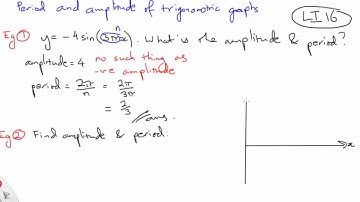 Period and amplitude of trigonometric graphs
LI 16
Eg ① y = -4 sin(3πx). What is the amplitude & period?
n
amplitude = 4 no such thing as
-ve amplitude
period = 2π/n = 2π/3π
= 2/3 ans.
Eg ② Find amplitude & period.
x